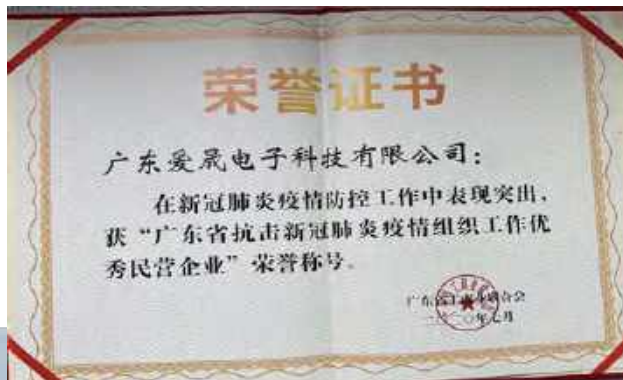 荣誉证书
广东爱晟电子科技有限公司：
在新冠肺炎疫情防控工作中表现突出，
获“广东省抗击新冠肺炎疫情组织工作优
秀民营企业”荣誉称号。
广东省工商业联合会
二〇二〇年七月